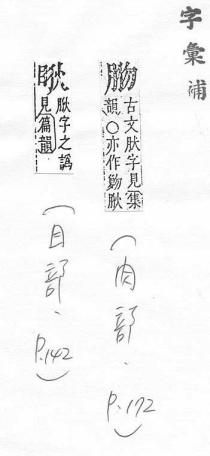 字彙補
古文肰字見集
韻○亦作肳肰
(肉部.P.172)
肰字之譌
見篇韻
(目部.P.142)